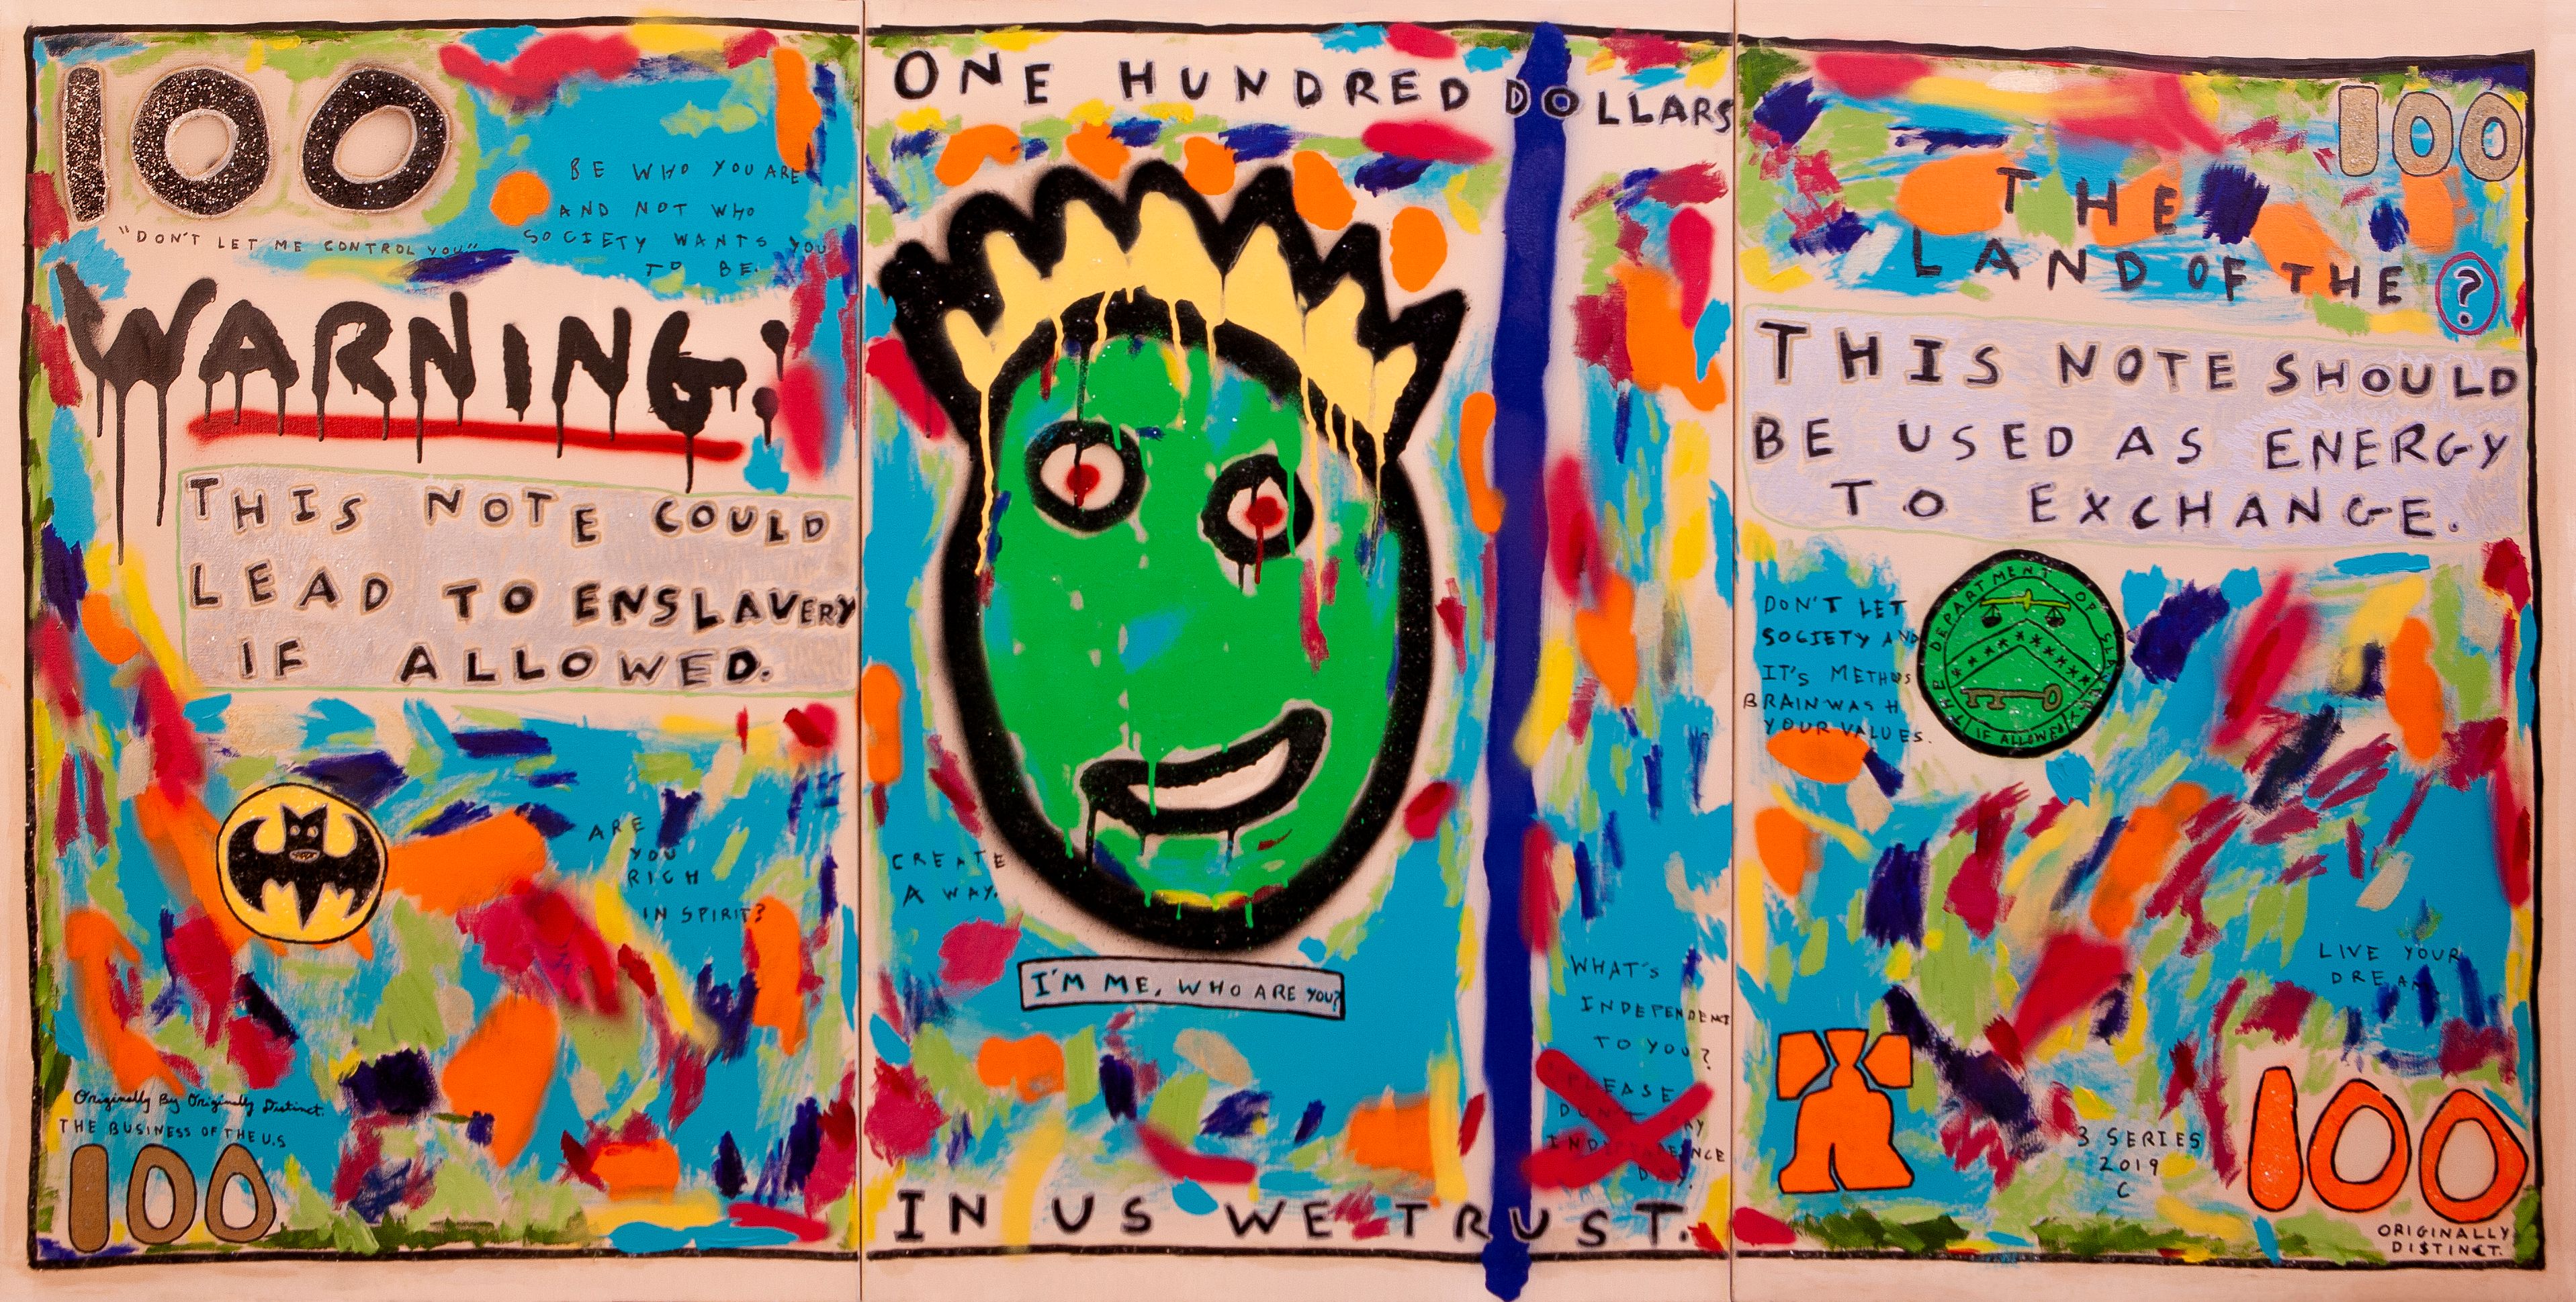 100
"DON'T LET ME CONTROL YOU"
BE WHO YOU ARE
AND NOT WHO
SOCIETY WANTS YOU
TO BE.
WARNING:
THIS NOTE COULD
LEAD TO ENSLAVERY
IF ALLOWED.
ARE
YOU
RICH
IN SPIRIT?
Originally By Originally Distinct.
THE BUSINESS OF THE U.S
100
ONE HUNDRED DOLLARS
CREATE
A WAY.
I'M ME, WHO ARE YOU?
WHAT'S
INDEPENDENCE
TO YOU?
DAY.
IN US WE TRUST.
100
THE
LAND OF THE ?
THIS NOTE SHOULD
BE USED AS ENERGY
TO EXCHANGE.
DON'T LET
SOCIETY AND
IT'S METHODS
BRAINWASH
YOUR VALUES.
THE DEPARTMENT OF SLAVERY
IF ALLOWED
LIVE YOUR
3 SERIES
2019
C
100
ORIGINALLY
DISTINCT.